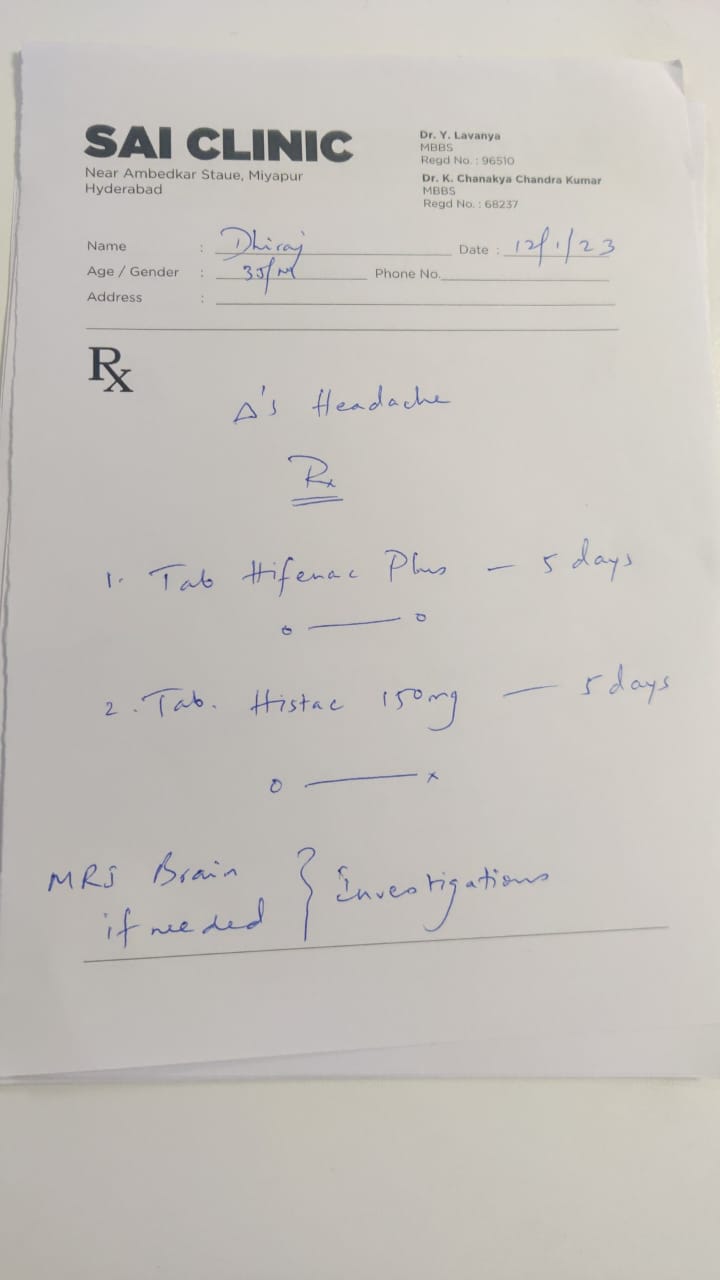 SAI CLINIC
Near Ambedkar Staue, Miyapur
Hyderabad
Dr. Y. Lavanya
MBBS
Regd No. : 96510
Dr. K. Chanakya Chandra Kumar
MBBS
Regd No. : 68237
Name : Dhiraj Date : 12/1/23
Age / Gender : 35/M Phone No.
Address :
Rx
Δ's Headache
Rx
1. Tab Hifenac Plus — 5 days
o — o
2. Tab. Histac 150mg — 5 days
o — x
MRI Brain } Investigations
if needed